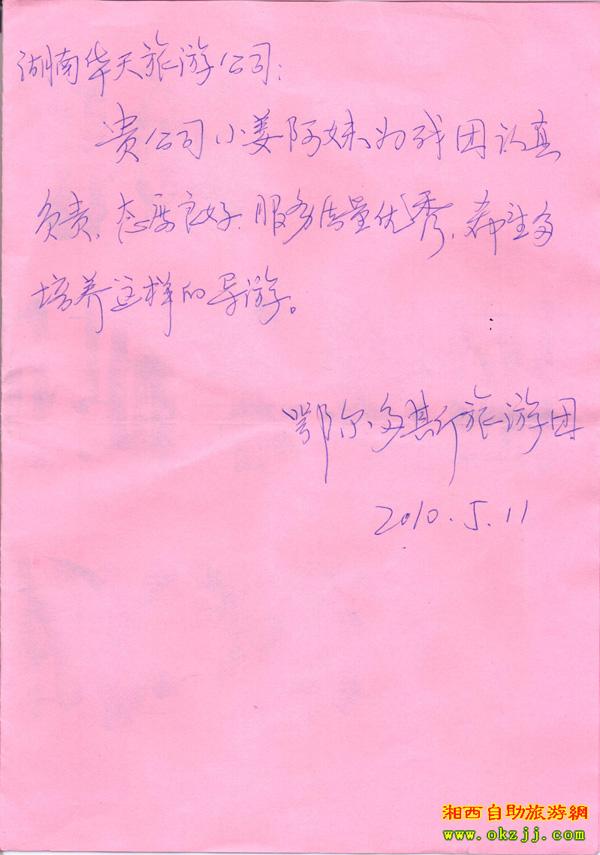 湖南华天旅游公司：
贵公司小姜阿妹为我团认真
负责、态度良好、服务质量优秀，希望多
培养这样的导游。
鄂尔多斯旅游团
2010.5.11
湘西自助旅游網
www.okzjj.com